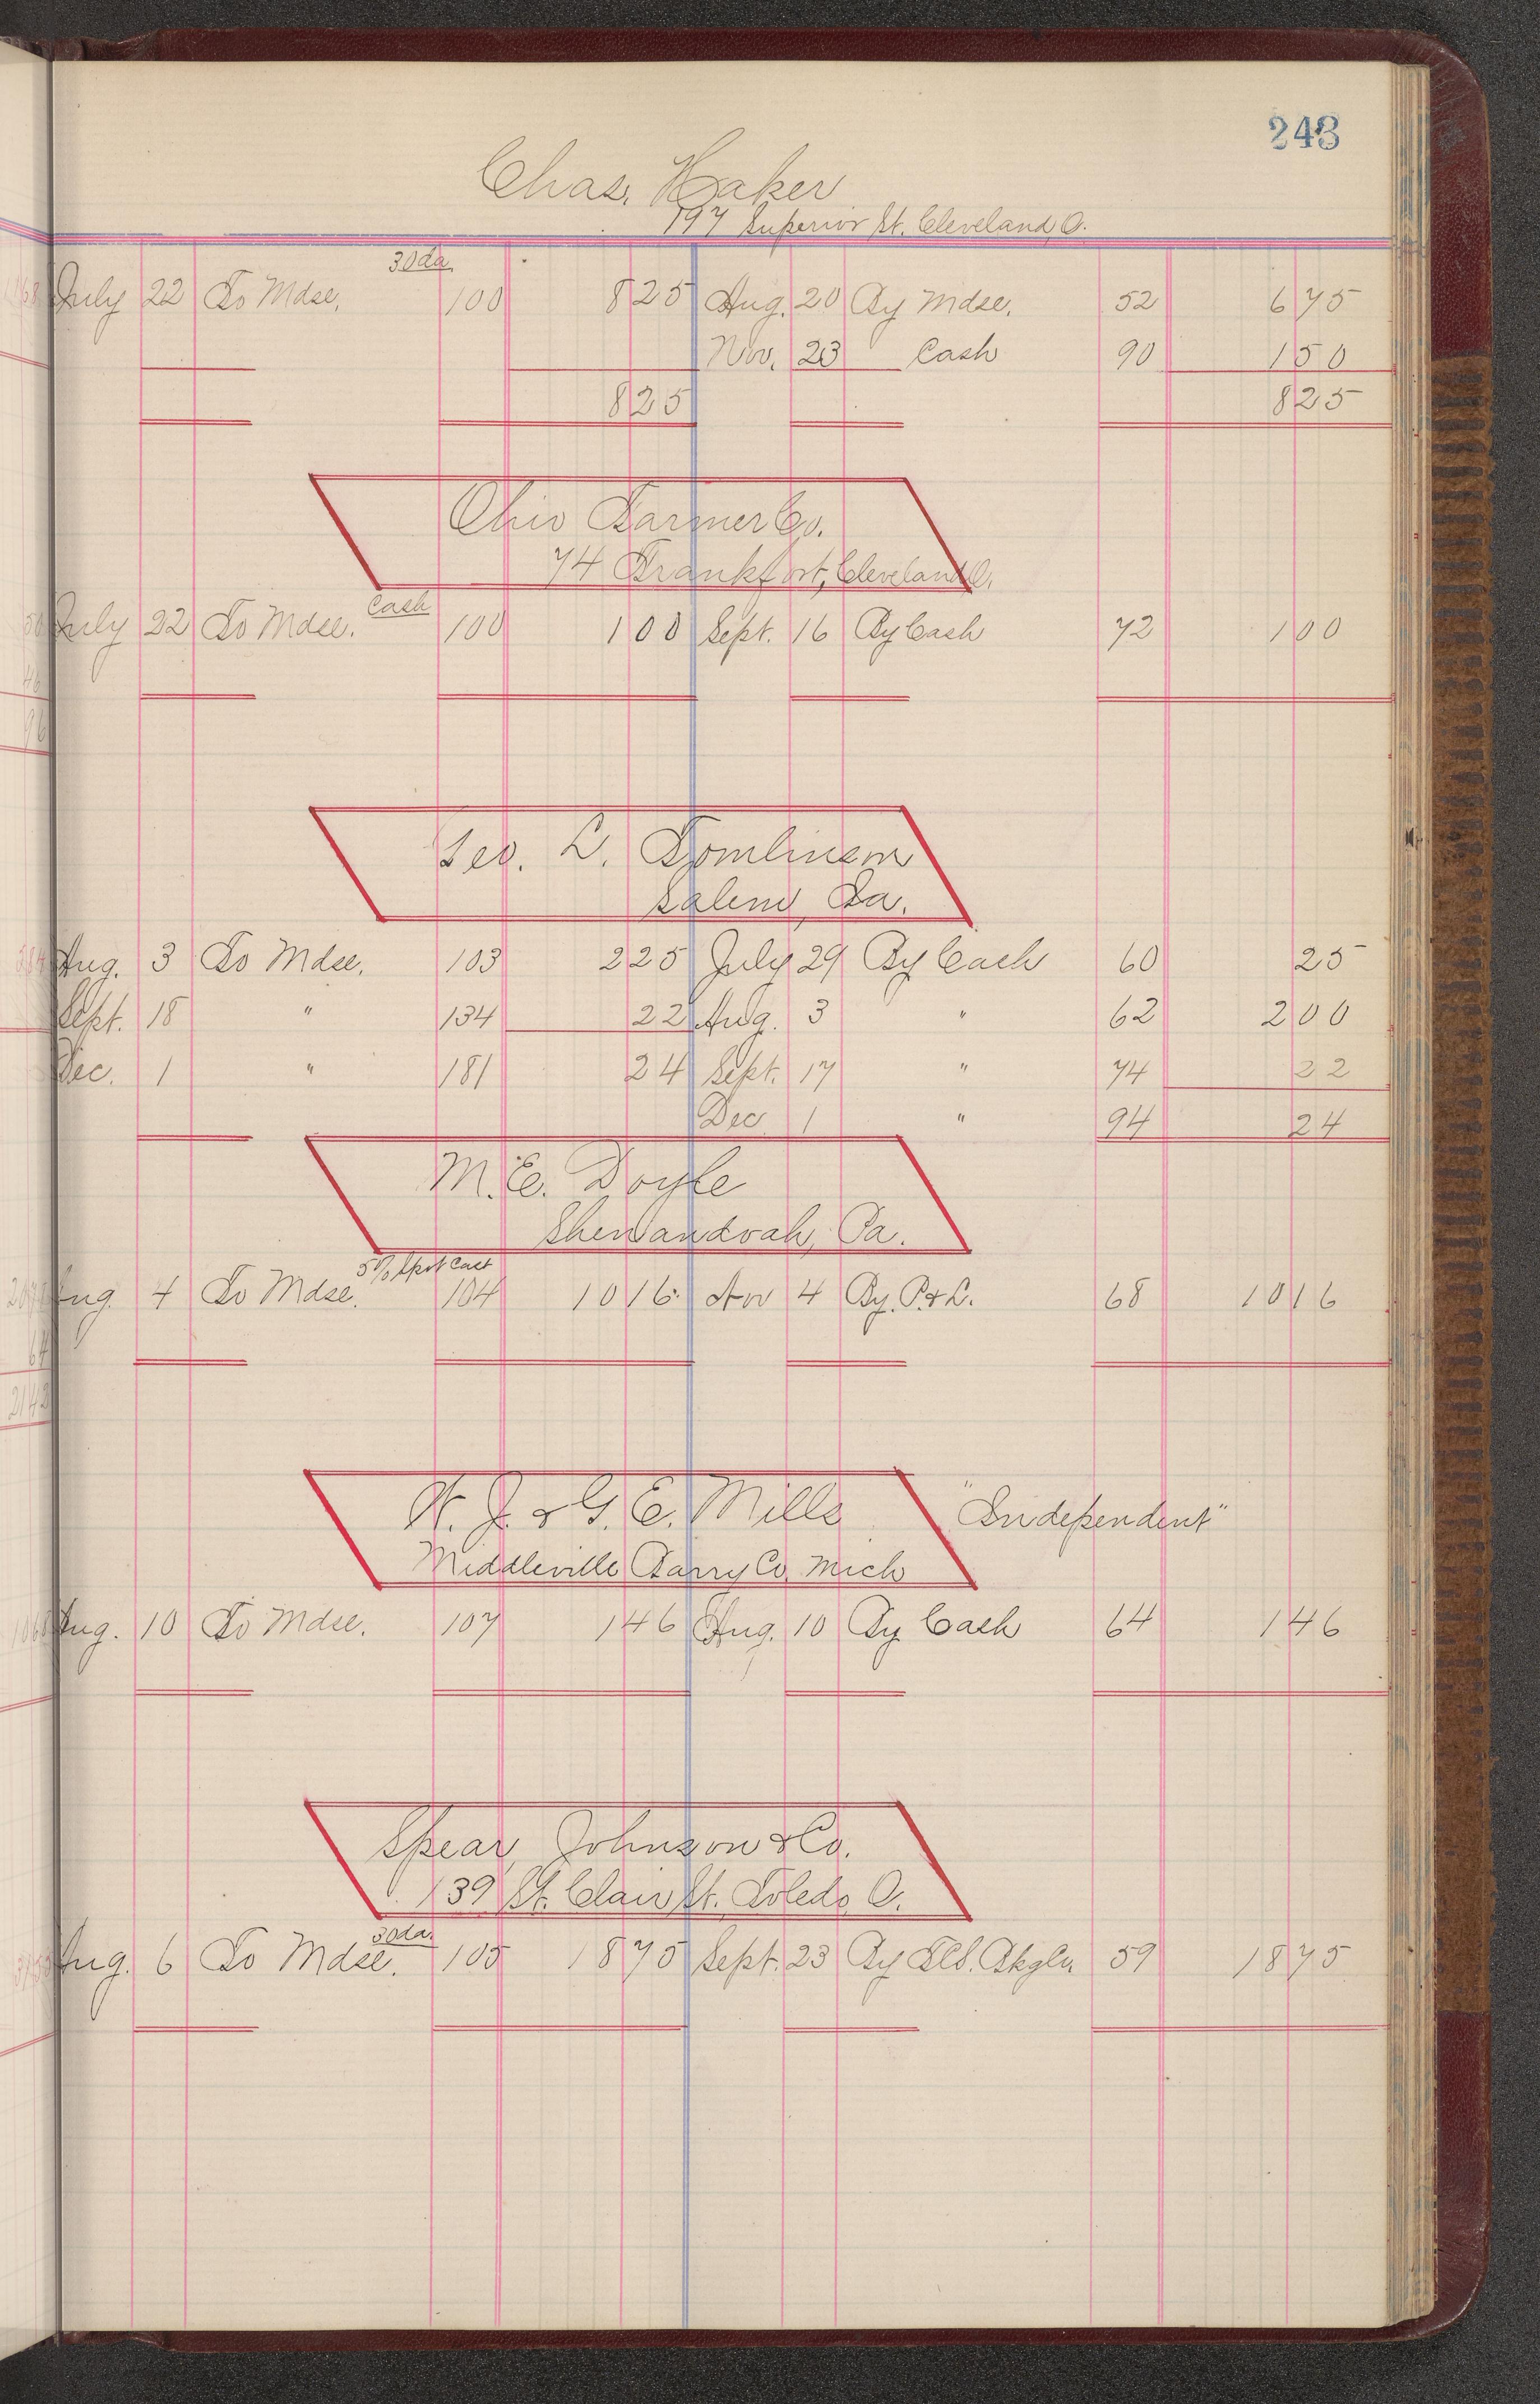 243
Chas. Haker
197 Superior St. Cleveland, O.
30 da
July 22 To Mdse. 100 8 25 Aug. 20 By Mdse. 52 6 75
Nov. 23 Cash 90 1 50
8 25 8 25
Ohio Farmer Co.
74 Frankfort, Cleveland O.
Cash
July 22 To Mdse. 100 1 00 Sept. 16 By Cash 72 1 00
Geo. L. Tomlinson
Salem, Ia.
Aug. 3 To Mdse. 103 2 25 July 29 By Cash 60 25
Sept. 18 " 134 22 Aug. 3 " 62 2 00
Dec. 1 " 181 24 Sept. 17 " 74 22
Dec 1 " 94 24
M. E. Doyle
Shenandoah, Pa.
5% Spot Cash
Aug. 4 To Mdse. 104 10 16 Nov 4 By P. & L. 68 10 16
W. J. & G. E. Mills "Independent"
Middleville Barry Co. Mich
Aug. 10 To Mdse. 107 1 46 Aug. 10 By Cash 64 1 46
Spear, Johnson & Co.
139 St. Clair St. Toledo, O.
30 da.
Aug. 6 To Mdse. 105 18 75 Sept. 23 By 59 18 75